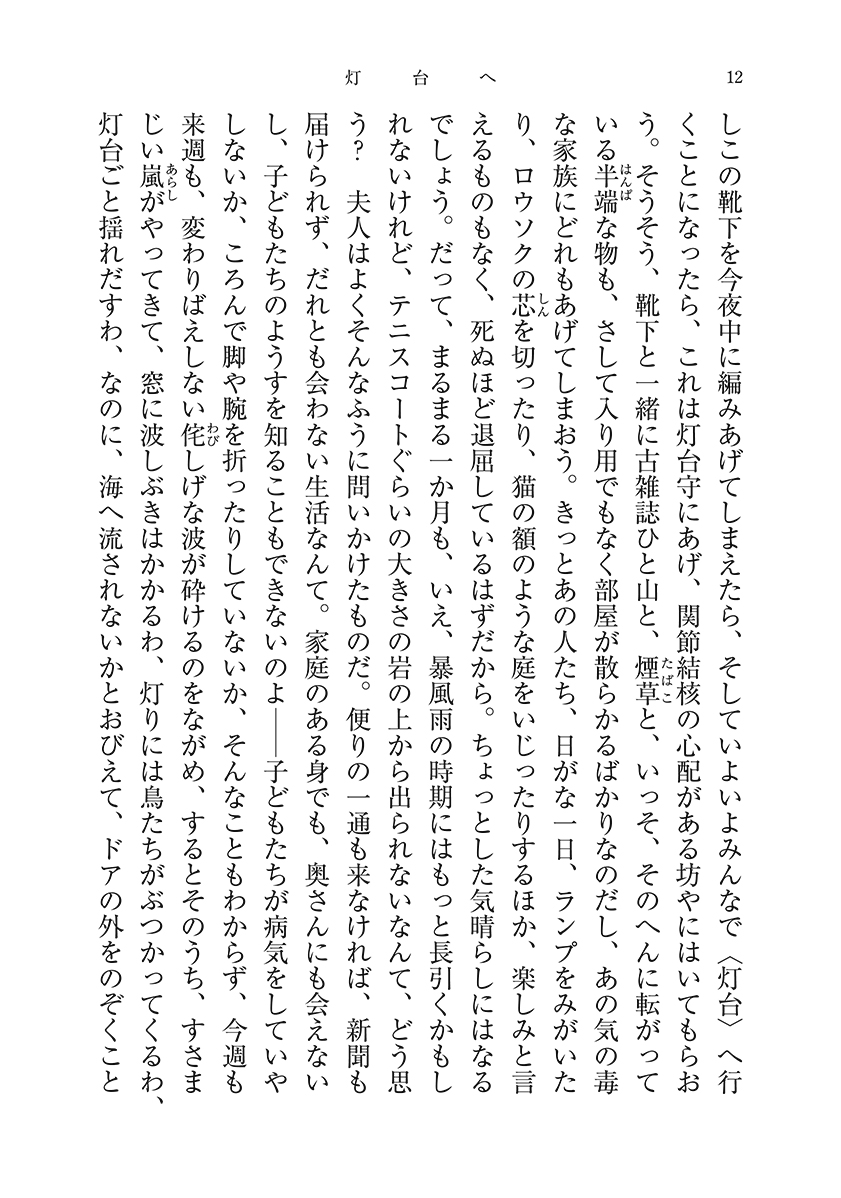 灯台へ
12
しこの靴下を今夜中に編みあげてしまえたら、そしていよいよみんなで〈灯台〉へ行
くことになったら、これは灯台守にあげ、関節結核の心配がある坊やにはいてもらお
う。そうそう、靴下と一緒に古雑誌ひと山と、煙草と、いっそ、そのへんに転がって
いる半端な物も、さして入り用でもなく部屋が散らかるばかりなのだし、あの気の毒
な家族にどれもあげてしまおう。きっとあの人たち、日がな一日、ランプをみがいた
り、ロウソクの芯を切ったり、猫の額のような庭をいじったりするほか、楽しみと言
えるものもなく、死ぬほど退屈しているはずだから。ちょっとした気晴らしにはなる
でしょう。だって、まるまる一か月も、いえ、暴風雨の時期にはもっと長引くかもし
れないけれど、テニスコートぐらいの大きさの岩の上から出られないなんて、どう思
う？　夫人はよくそんなふうに問いかけたものだ。便りの一通も来なければ、新聞も
届けられず、だれとも会わない生活なんて。家庭のある身でも、奥さんにも会えない
し、子どもたちのようすを知ることもできないのよ――子どもたちが病気をしていや
しないか、ころんで脚や腕を折ったりしていないか、そんなこともわからず、今週も
来週も、変わりばえしない侘しげな波が砕けるのをながめ、するとそのうち、すさま
じい嵐がやってきて、窓に波しぶきはかかるわ、灯りには鳥たちがぶつかってくるわ、
灯台ごと揺れだすわ、なのに、海へ流されないかとおびえて、ドアの外をのぞくこと